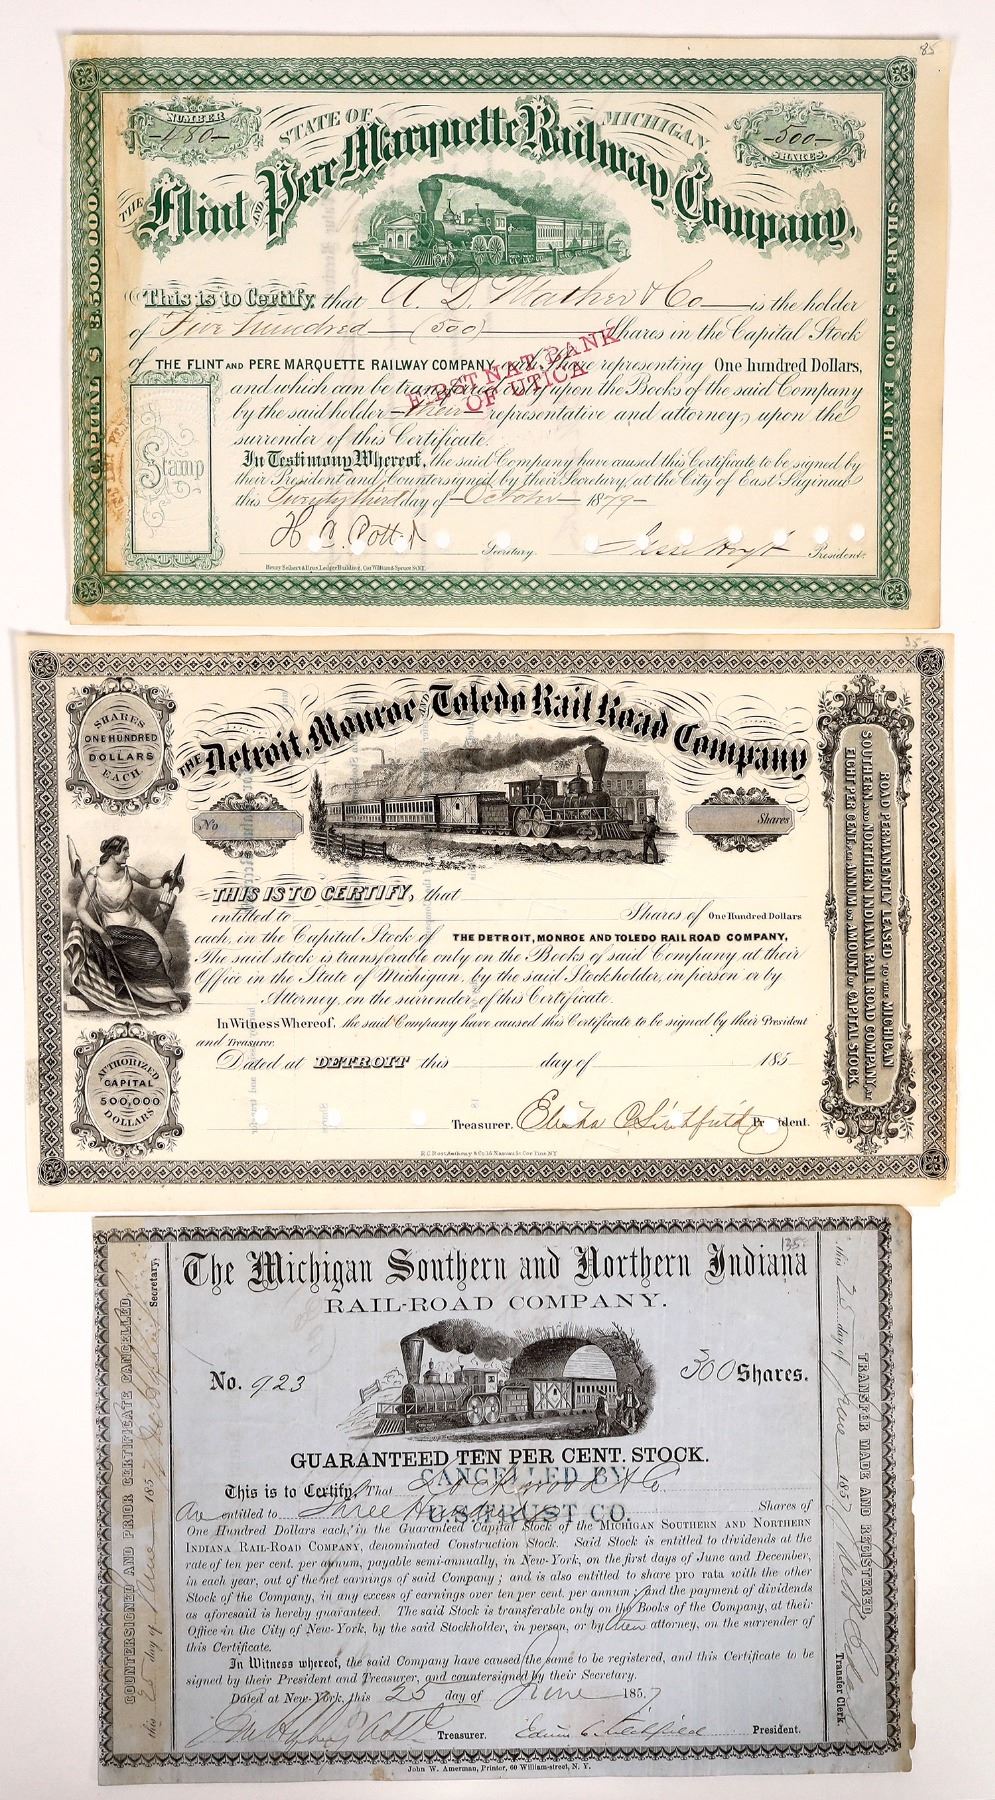 85
NUMBER
-480-
STATE OF MICHIGAN.
-500-
SHARES.
THE Flint AND Pere Marquette Railway Company.
CAPITAL $ 3,500,000.
SHARES $100 EACH.
This is to Certify, that A. D. Mather & Co is the holder
of Five hundred (500) Shares in the Capital Stock
of THE FLINT AND PERE MARQUETTE RAILWAY COMPANY, each Share representing One hundred Dollars,
and which can be transferred only upon the Books of the said Company
by the said holder their representative and attorney, upon the
surrender of this Certificate.
FIRST NAT. BANK
OF UTICA
In Testimony Whereof, the said Company have caused this Certificate to be signed by
their President and Countersigned by their Secretary, at the City of East Saginaw
this Twenty third day of October 1879
Stamp
H. C. Potter Secretary. Jesse Hoyt President.
Henry Seibert & Bros. Ledger Building, Cor William & Spruce St N.Y.
35-
SHARES
ONE HUNDRED
DOLLARS
EACH.
THE Detroit, Monroe AND Toledo Rail Road Company
No
Shares
ROAD PERMANENTLY LEASED TO THE MICHIGAN
SOUTHERN AND NORTHERN INDIANA RAIL ROAD COMPANY, AT
EIGHT PER CENT. PER ANNUM ON AMOUNT OF CAPITAL STOCK
THIS IS TO CERTIFY, that
entitled to Shares of One Hundred Dollars
each, in the Capital Stock of THE DETROIT, MONROE AND TOLEDO RAIL ROAD COMPANY,
The said stock is transferable only on the Books of said Company at their
Office in the State of Michigan, by the said Stockholder, in person or by
Attorney, on the surrender of this Certificate.
In Witness Whereof, the said Company have caused this Certificate to be signed by their President
and Treasurer.
Dated at DETROIT this day of 185
AUTHORIZED
CAPITAL
500,000
DOLLARS
Treasurer. Elisha C. Litchfield President.
The Michigan Southern and Northern Indiana
RAIL-ROAD COMPANY.
135-
No. 923
300 Shares.
GUARANTEED TEN PER CENT. STOCK.
CANCELLED BY
U.S. TRUST CO.
This is to Certify, That Lockwood & Co
are entitled to Three Hundred Shares of
One Hundred Dollars each, in the Guaranteed Capital Stock of the MICHIGAN SOUTHERN AND NORTHERN
INDIANA RAIL-ROAD COMPANY, denominated Construction Stock. Said Stock is entitled to dividends at the
rate of ten per cent. per annum, payable semi-annually, in New-York, on the first days of June and December,
in each year, out of the net earnings of said Company; and is also entitled to share pro rata with the other
Stock of the Company, in any excess of earnings over ten per cent. per annum; and the payment of dividends
as aforesaid is hereby guaranteed. The said Stock is transferable only on the Books of the Company, at their
Office in the City of New-York, by the said Stockholder, in person, or by their attorney, on the surrender of
this Certificate.
In Witness whereof, the said Company have caused the same to be registered, and this Certificate to be
signed by their President and Treasurer, and countersigned by their Secretary.
Dated at New-York, this 25 day of June 1857
Treasurer. Edwin C. Litchfield President.
COUNTERSIGNED AND PRIOR CERTIFICATE CANCELLED,
this 25 day of June 1857 Secretary.
TRANSFER MADE AND REGISTERED
this 25 day of June 1857 Transfer Clerk.
John W. Amerman, Printer, 60 William-street, N. Y.